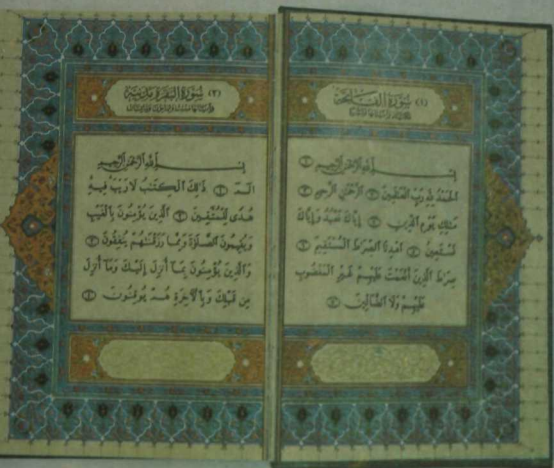 (١) سُورَةُ الفَاتِحَةِ
بِسْمِ ٱللَّهِ ٱلرَّحْمَٰنِ ٱلرَّحِيمِ ١
ٱلْحَمْدُ لِلَّهِ رَبِّ ٱلْعَٰلَمِينَ ٢ ٱلرَّحْمَٰنِ ٱلرَّحِيمِ ٣
مَٰلِكِ يَوْمِ ٱلدِّينِ ٤ إِيَّاكَ نَعْبُدُ وَإِيَّاكَ
نَسْتَعِينُ ٥ ٱهْدِنَا ٱلصِّرَٰطَ ٱلْمُسْتَقِيمَ ٦
صِرَٰطَ ٱلَّذِينَ أَنْعَمْتَ عَلَيْهِمْ غَيْرِ ٱلْمَغْضُوبِ
عَلَيْهِمْ وَلَا ٱلضَّآلِّينَ ٧
(٢) سُورَةُ البَقَرَةِ مَدَنِيَّة
بِسْمِ ٱللَّهِ ٱلرَّحْمَٰنِ ٱلرَّحِيمِ
الٓمٓ ١ ذَٰلِكَ ٱلْكِتَٰبُ لَا رَيْبَ فِيهِ
هُدًى لِّلْمُتَّقِينَ ٢ ٱلَّذِينَ يُؤْمِنُونَ بِٱلْغَيْبِ
وَيُقِيمُونَ ٱلصَّلَوٰةَ وَمِمَّا رَزَقْنَٰهُمْ يُنفِقُونَ ٣
وَٱلَّذِينَ يُؤْمِنُونَ بِمَآ أُنزِلَ إِلَيْكَ وَمَآ أُنزِلَ
مِن قَبْلِكَ وَبِٱلْءَاخِرَةِ هُمْ يُوقِنُونَ ٤